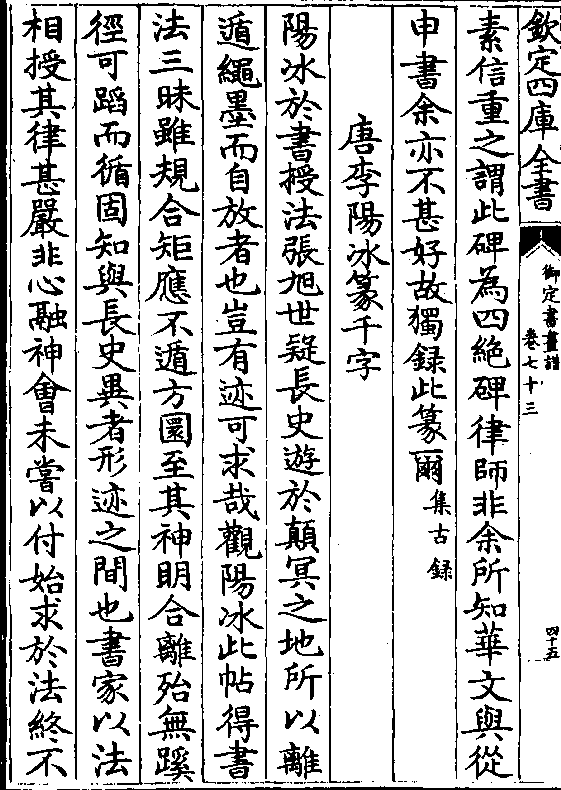 欽定四庫全書
御定書畫譜
卷七十三
四十五
素信重之謂此碑為四絶碑律師非余所知華文與從
申書余亦不甚好故獨録此篆爾集古録
唐李陽冰篆千字
陽冰於書授法張旭世疑長史遊於顛冥之地所以離
遁繩墨而自放者也豈有迹可求哉觀陽冰此帖得書
法三昧雖規合矩應不遁方圜至其神明合離殆無蹊
徑可蹈而循固知與長史異者形迹之間也書家以法
相授其律甚嚴非心融神會未嘗以付始求於法終不